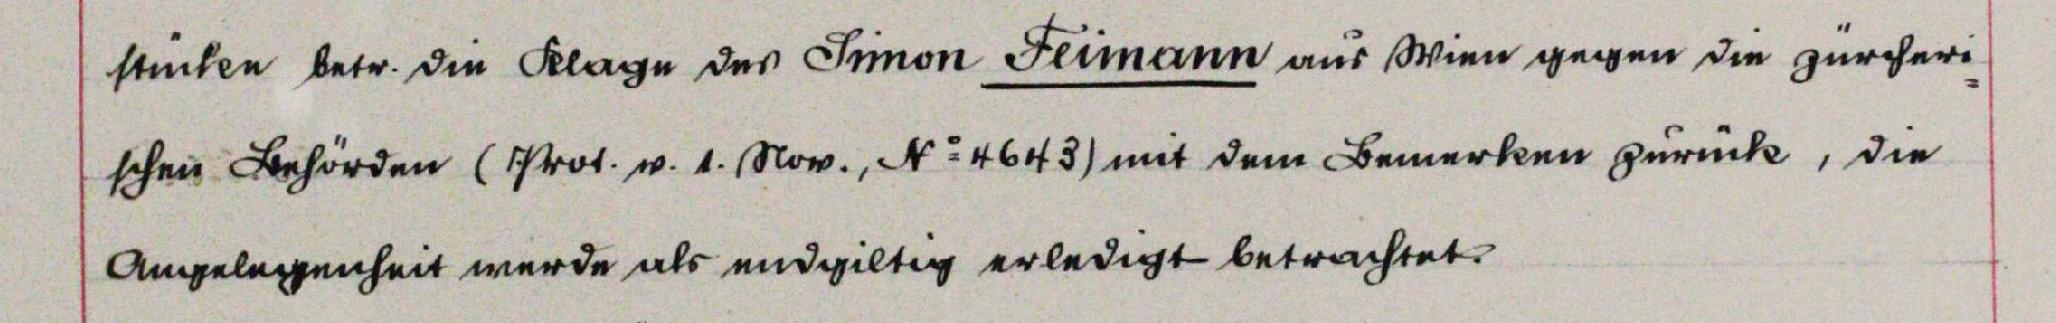 stücken betr. die Klage des Simon Feimann aus Wien gegen die zürcheri=
schen Behörden (Prot. v. 1. Nov., No 4643) mit dem Bemerken zurück, die
Angelegenheit werde als endgiltig erledigt betrachtet.